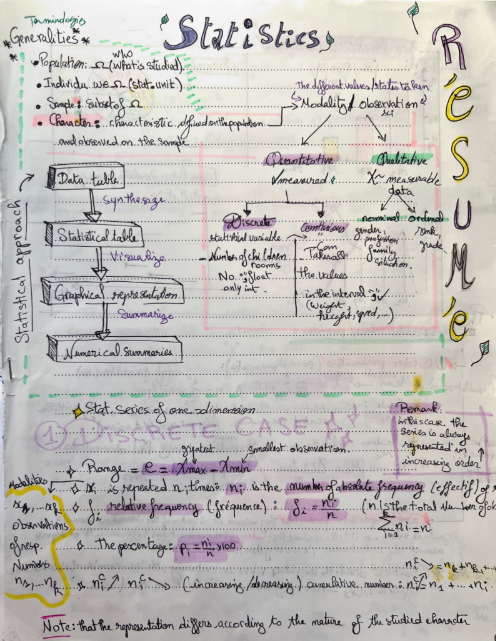 Terminologies
*Generalities*
Statistics
Résumé
who
• Population: Ω (what's studied).
• Individu ω∈Ω (stat. unit)
• Sample: subset of Ω
• Character: characteristic defined on the population
and observed on the sample
The different values/states taken
Modality/observation
Quantitative
✓measured
Qualitative
X measurable
data
Discrete
statistical variable
Number of children
rooms
No float
only int
Continuous
Can
Take all
the values
in the interval
(weight
height, speed, ...)
nominal
gender,
profession
family
situation.
ordinal
rank,
grade,
Statistical approach
Data table
Synthesize
Statistical table
Visualize
Graphical representation
Summarize
Numerical summaries
Stat. Series of one dimension
1) DISCRETE CASE
Remark
in this case the
Series is always
represented in
increasing order
greatest smallest observation.
Range = e = Xmax - Xmin
xi is repeated ni times: ni is the number of absolute frequency (effectif) of
fi relative frequency (fréquence): fi = ni/n (n is the total number of
∑ ni = n
i=1
The percentage: pi = ni/n x100
Modalities
x1, ... xk
observations
of resp.
Numbers
n1, ... nk
ni^c ↘ = nk + nk-1 + ...
ni^c ↗ ni^c ↘ (increasing/decreasing) cumulative number: ni^c ↗ = n1 + ... + ni.
Note: that the representation differs according to the nature of the studied character